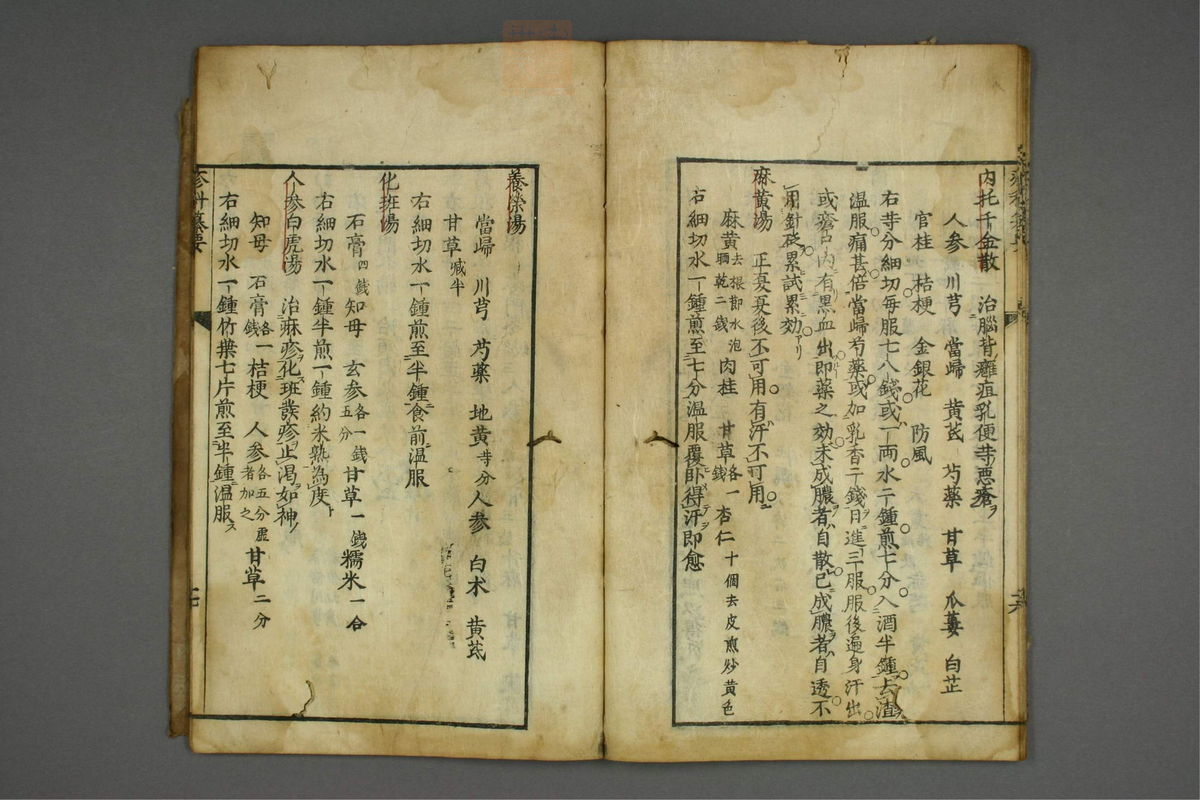 内托千金散　治腦背癰疽乳便等悪瘡ヲ
人参　川芎　當歸　黄芪　芍藥　甘草　瓜蔞　白芷
官桂　桔梗　金銀花　防風
右等分細切毎服七八錢或一両水二鍾煎七分入酒半鍾去渣
温服痛甚倍當歸芍藥或加乳香二錢日進三服服後遍身汗出
或瘡口内有黒血出即藥之効未成膿者自散已成膿者自透不
用針砭累試累効アリ
麻黄湯　正夏夏後不可用有汗不可用
麻黄去根節水泡晒乾二錢　肉桂　甘草各一錢　杏仁十個去皮煎炒黄色
右細切水一鍾煎至七分温服覆卧得汗即愈
養榮湯
當歸　川芎　芍藥　地黄等分　人参　白术　黄芪
甘草減半
右細切水一鍾煎至半鍾食前温服
化班湯
石膏四錢　知母　玄参各一錢五分　甘草一錢　糯米一合
右細切水一鍾半煎一鍾約米熟為度
人参白虎湯　治麻疹化班發疹止渇如神
知母　石膏各一錢　桔梗　人参各五分虚者加之　甘草二分
右細切水一鍾竹葉七片煎至半鍾温服ス
疹科纂要